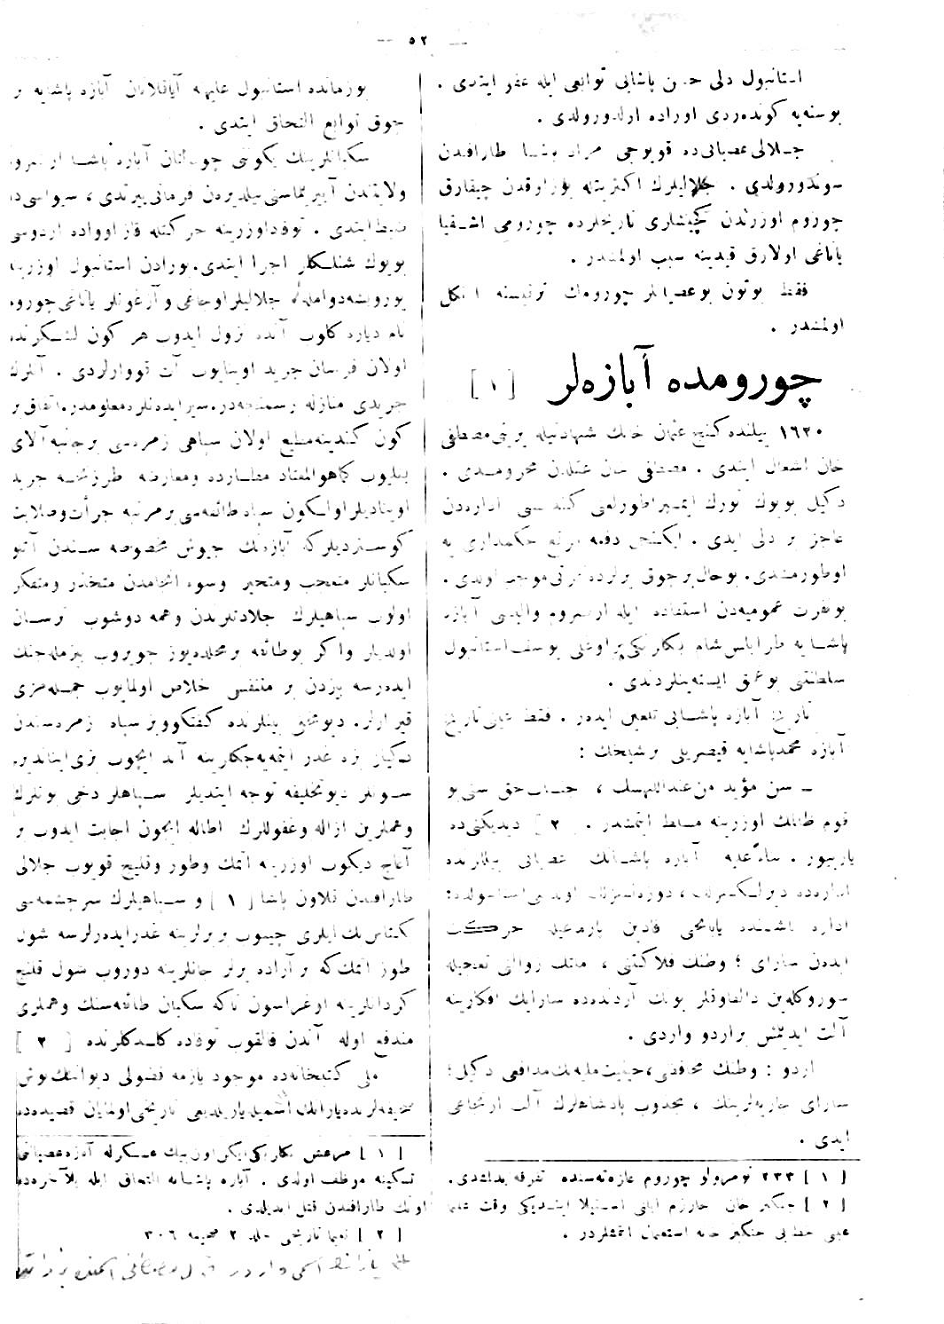 — ٥٢ —
استانبول دلی حسن پاشایی توابعی ایله عفو ایتدی .
بوسنه‌یه كوندەردی اوراده اولدورولدی .
جلالی عصیانی‌ده قویوجی مراد پاشا طارافندن
سوندورولدی . جلالیلرك اكثریتله بوزاوقدن چیقارق
چوروم اوزرندن كچیشلری تاریخلرده چورومی اشقیا
یاتاغی اولارق قیدینه سبب اولمشدر .
فقط بوتون بو عصیانلر چورومك ترقیسنه انكل
اولمشدر .
چورومده آبازه‌لر [ ١ ]
١٦٢٠ ییلنده كنج عثمان خانك شهادتیله یرینی مصطفی
خان اشغال ایتدی . مصطفی خان عقلدن محرومدی .
دكیل بویوك تورك ایمپراطورلغی كندیسنی اداره‌دن
عاجز بر دلی ایدی . ایكنجی دفعه مرتبه حكمداری یه
اوطورمشدی. بوحال برچوق یرلرده نفرتی موجب اولدی .
بو نفرت عمومیه‌دن استفاده ایله ارضروم والیسی آبازه
پاشا یه طرابلس شام بكلربكی اوغلی یوسف استانبول
سلطنتی بوغمق ایسته‌یتلردندی .
تاریخ آبازه پاشایی تلعین ایدر . فقط عینی تاریخ
آبازه محمدپاشایه قیصریلی بر شیخك :
ـ سن مؤید من عنداللهسك ، جناب حق سنی بو
قوم ظالمك اوزرینه مسلط ایتمشدر . [ ٢ ] دیدیكنی‌ده
یازییور . آبازه پاشانك عصیانی ییللرنده
اداره باشنده یابانجی قادین پارمغیله حركت
ایدن سارای ؛ وطنك فلاكتنی ، ملتك زوالنی تعجیله
سوروكله‌ین دالقاوقلر بونك آردنده‌ده سارایك افكارینه
آلت ایدیلمش بر اردو واردی .
اردو : وطنك محافظی، حیثیت ملیه‌نك مدافعی دكیل؛
سارای جاریه‌لرینك ، مجذوب پادشاهلرك آلت ارتجاعی
ایدی .
[ ١ ] ٢٣٣ نومرولو چوروم غازه‌ته‌سنده تفرقه باشلادی.
[ ٢ ] جنكیز خان خارزم ایلنی استیلا ایتدیكی وقت علما
عینی خطابی جنكیز خانه استعمال ایتمشلردر .
بو زمانده استانبول علیهنه آیاقلانان آبازه پاشایه بر
چوق توابع التحاق ایتدی .
سكبانلرینك یكونی چوغالان آبازه پاشا ارضروم
ولایتدن آییریلماسنی بیلدیرەن فرمانی ییرتدی ، سیواسی‌ده
ضبط ایتدی . توقاد اوزرینه حركتله قازاوواده اردوسی
بویوك شنلكلر اجرا ایتدی. بورادن استانبول اوزرینه
یورویشه دوامله جلالیلر اوجاغی و آزغونلر یاتاغی چوروم
نام دیاره كلوب آنده نزول ایدوب هر كون لشكرنده
اولان فرسان جرید اویناییوب آت قووارلردی . آنلرك
جریدی منازله رسمنجه‌در. سیر ایدنلره معلومدر. اتفاق بر
كون كندینه مطیع اولان سپاهی زمره‌سی بر جنبه آلای
بغلیوب كماهوالمعتاد مطارده ومعارضه طرزنجه جرید
اوینادیلر اولكون سپاه طائفه‌سی بر مرتبه جرأت وصلابت
كوستردیلركه آبازه‌نك جیوش مخصوصه سندن آتلو
سكبانلر متعجب ومتحیر وسوء انجامدن متحذر ومتفكر
اولوب سپاهیلرك جلادتلرندن وهمه دوشوب ترسان
اولدیلر واكر بو طائفه بر محلده یوز چویروب بزمله جنك
ایده‌رسه بزدن بر متنفس خلاص اولمایوب جمله‌مزی
قیرارلر. دیو بینلرنده كفتكو ویز سپاه زمره‌سندن
سویلر دیو تخلیفه توجه ایتدیلر سپاهلر دخی بونلرك
وهملرین ازاله وعقوللرك اطاله ایچون اجابت ایدوب بر
آغاج دیكوب اوزرینه اتمك وطوز وقلیج قویوب جلالی
طارافندن قلاون پاشا [ ١ ] و سپاهیلرك سرچشمه‌سی
كتاس بك ایلری چیقوب بربرلرینه غدر ایده‌رلرسه شول
طوز اتمك‌كه بر آراده یرلر جانلرینه دوروب شول قلیج
كردانلرینه اوغراسون تاكه سكبان طائفه‌سنك وهملری
مندفع اوله آندن قالقوب توقاده كلدكلرنده [ ٢ ]
ملی كتبخانه‌ده موجود یازمه فضولی دیواننك بوش
صحیفه‌لرنده یارانك اسمیله یازیلدیغی تاریخی اولمایان قصیده‌ده
[ ١ ] مرعش بكلربكی ایكن اون بیك عسكرله آبازه عصیاننی
تسكینه موظف اولدی . آبازه پاشایه التحاق ایله بالآخره‌ده
اونك طارافندن قتل ایدیلدی.
[ ٢ ] نعیما تاریخی جلد ٢ صحیفه ٣٠٦